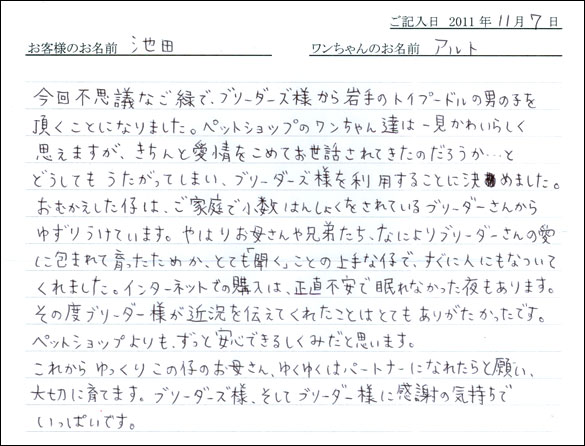 ご記入日 2011年11月7日
お客様のお名前 池田 ワンちゃんのお名前 アルト
今回不思議なご縁で、ブリーダーズ様から岩手のトイプードルの男の子を
頂くことになりました。ペットショップのワンちゃん達は一見かわいらしく
思えますが、きちんと愛情をこめてお世話されてきたのだろうか…と
どうしてもうたがってしまい、ブリーダーズ様を利用することに決めました。
おむかえした仔は、ご家庭で小数はんしょくをされているブリーダーさんから
ゆずりうけています。やはりお母さんや兄弟たち、なによりブリーダーさんの愛
に包まれて育ったためか、とても「聞く」ことの上手な仔で、すぐに人にもなついて
くれました。インターネットでの購入は、正直不安で眠れなかった夜もあります。
その度ブリーダー様が近況を伝えてくれたことはとてもありがたかったです。
ペットショップよりも、ずっと安心できるしくみだと思います。
これからゆっくりこの仔のお母さん、ゆくゆくはパートナーになれたらと願い、
大切に育てます。ブリーダーズ様、そしてブリーダー様に感謝の気持ちで
いっぱいです。